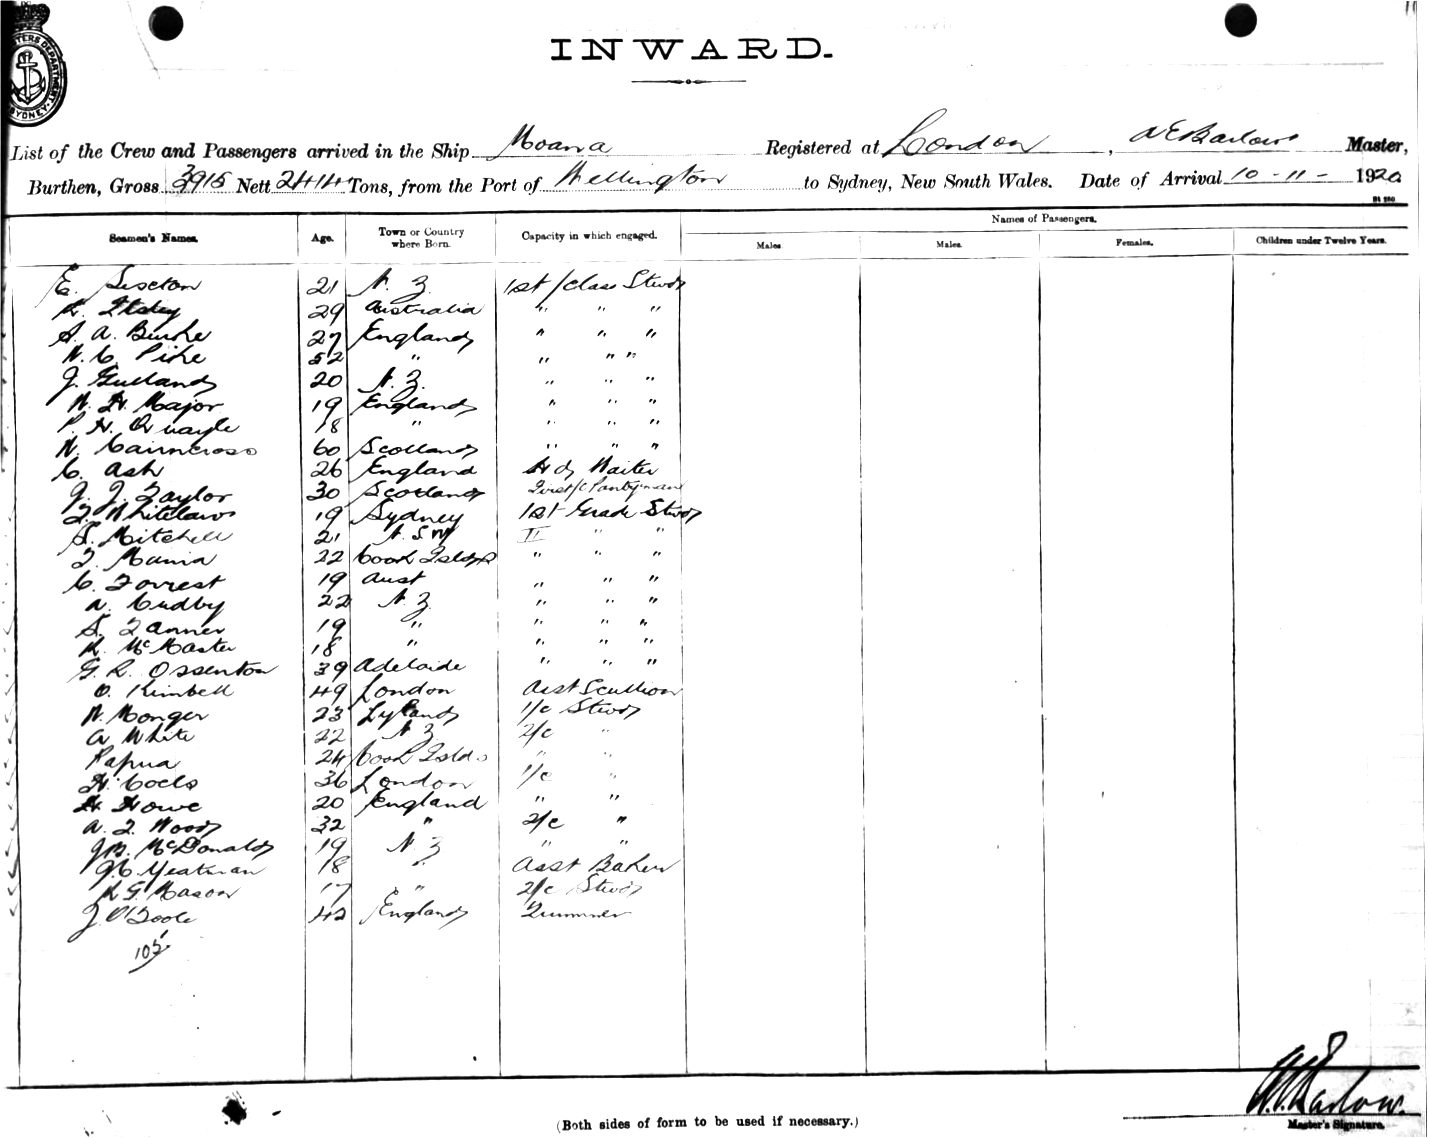 INWARD.
List of the Crew and Passengers arrived in the Ship Moana Registered at London, Barlow Master,
Burthen, Gross 3915 Nett 2414 Tons, from the Port of Wellington to Sydney, New South Wales. Date of Arrival 10-11-1920
Names of Passengers.
Seamen's Names. Age. Town or Country where Born. Capacity in which engaged. Males Males. Females. Children under Twelve Years.
E. 21 N.Z. 1st/Class Stewd
29 Australia " " "
S. A. Burke 27 England " " "
W. C. Pike 52 " " " "
J. Gulland 20 N.Z. " " "
W. H. Major 19 England " " "
P. H. Quayle 18 " " " "
W. Cairncross 60 Scotland " " "
C. Ash 26 England Hd Waiter
J. J. Taylor 30 Scotland First/c Pantryman
T. Whitelaw 19 Sydney 1st Grade Stewd
S. Mitchell 21 N.S.W II " "
T. Mania 22 Cook Islds " " "
C. Forrest 19 Aust " " "
A. Cudby 22 N.Z. " " "
S. Tanner 19 " " " "
R. McMaster 18 " " " "
G. R. Ossenton 39 Adelaide " " "
O. Kimbell 49 London Asst Scullion
W. Monger 23 1/c Stewd
A White 22 N Z 2/c "
Papua 24 Cook Islds " "
H. Cocks 36 London 1/c "
H. Howe 20 England " "
A. T. Wood 32 " 2/c "
J B. McDonald 19 N Z " "
Yeatman 18 " Asst Baker
R G. Mason 17 " 2/c Stewd
J. O'Toole 42 England Trimmer
105
Barlow.
Master's Signature.
(Both sides of form to be used if necessary.)